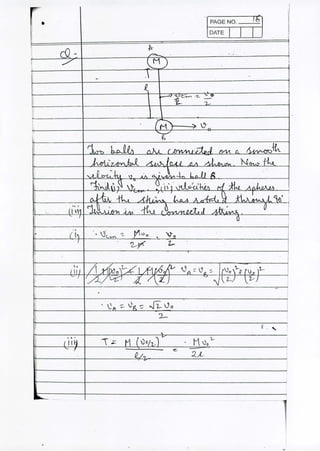 PAGE NO. 18
DATE
Q.
A
M
l
Vcm = v₀/2
M
v₀
B
Two balls are connected on a smooth
horizontal surface as shown. Now the
velocity v₀ is given to ball B.
Find (i) Vcm, (ii) velocities of the spheres
after the string has rotated through 90°
(iii) Tension in the connected string.
(i) Vcm = Mv₀/2M = v₀/2
(ii) vA = vB = √((v₀/2)² + (v₀/2)²)
∴ vA = vB = √2 v₀/2
(iii) T = M (v₀/2)²/(l/2) = Mv₀²/2l